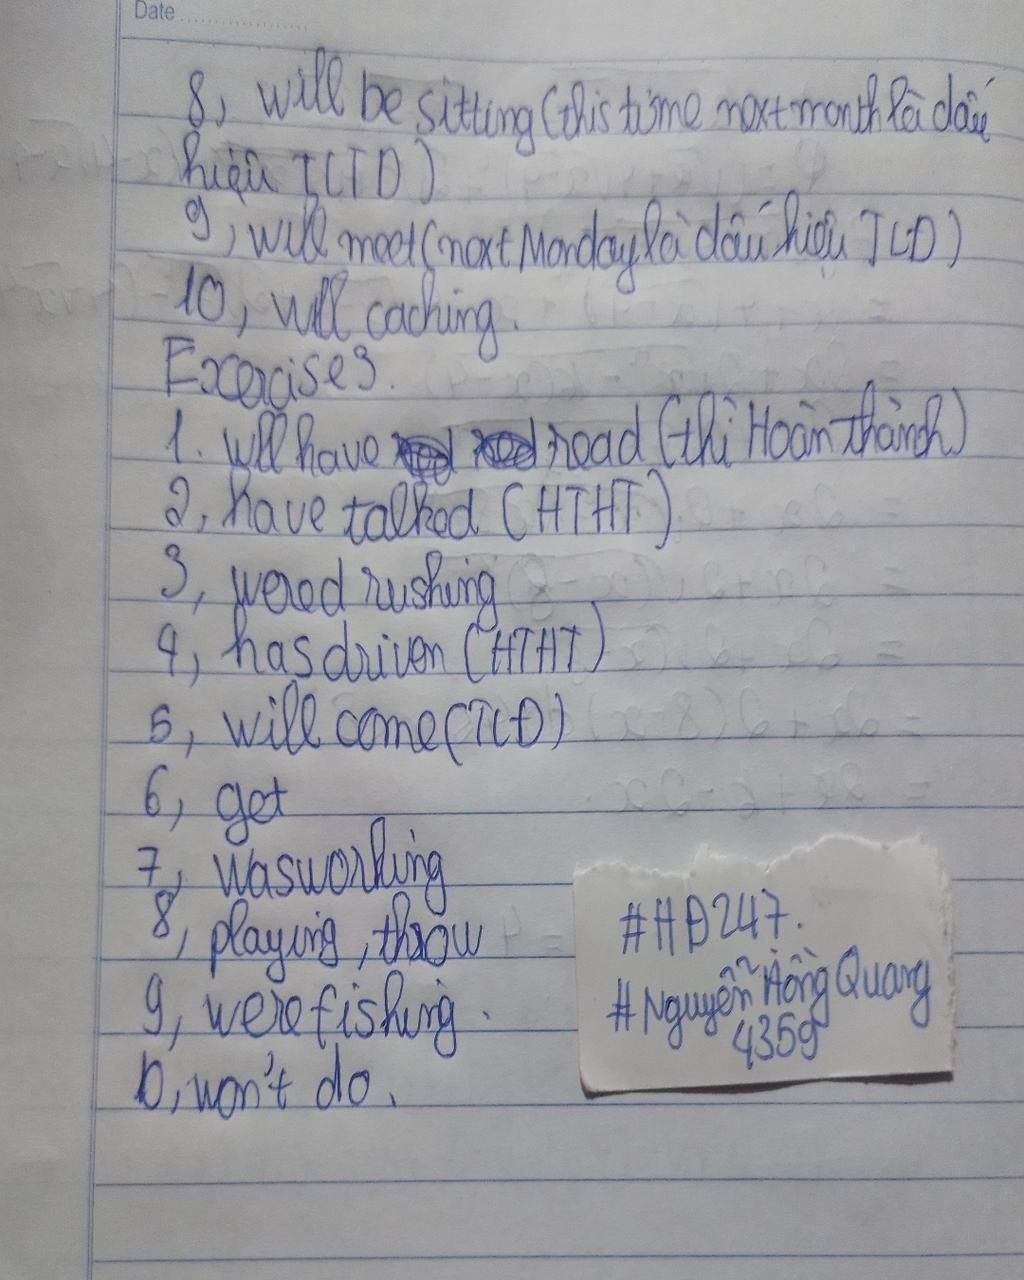 Date
8, will be sitting (this time next month là dấu
hiệu TLTD)
9, will meet (next Monday là dấu hiệu TLD)
10, will caching.
Exercise 3.
1. will have read (thì Hoàn thành)
2, have talked (HTHT)
3, wered rushing
4, has driven (HTHT)
5, will come (TLĐ)
6, get
7, was working
8, playing, throw
9, were fishing.
10, won't do.
#HĐ247.
#Nguyễn Hồng Quang
4359